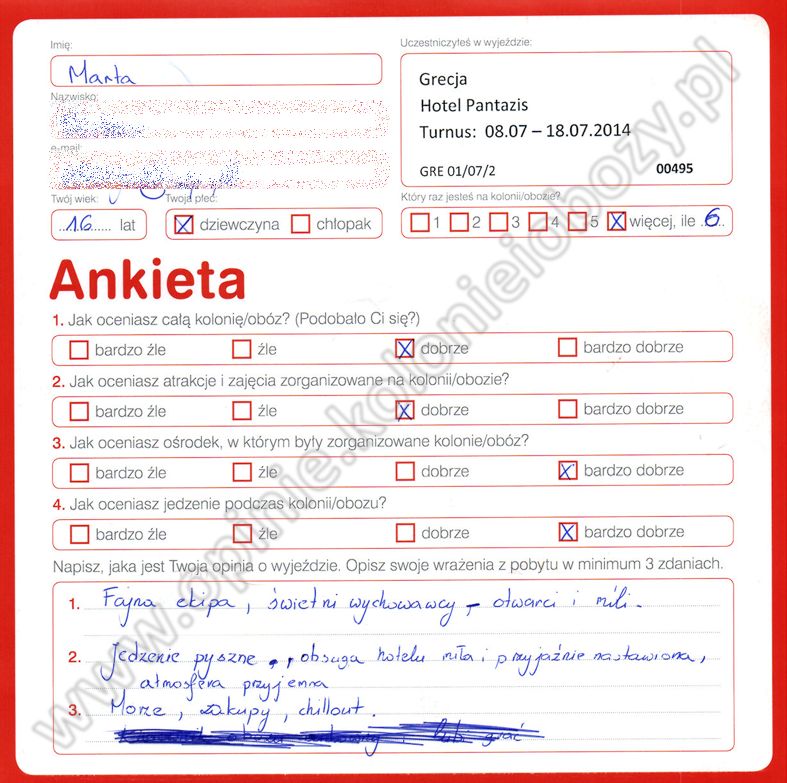 Imię:
Marta
Uczestniczyłeś w wyjeździe:
Grecja
Hotel Pantazis
Turnus: 08.07 – 18.07.2014
GRE 01/07/2 00495
Nazwisko:
e-mail:
Twój wiek: Twoja płeć:
..16..... lat X dziewczyna chłopak
Który raz jesteś na kolonii/obozie?
1 2 3 4 5 X więcej, ile ..6..
Ankieta
1. Jak oceniasz całą kolonię/obóz? (Podobało Ci się?)
bardzo źle źle X dobrze bardzo dobrze
2. Jak oceniasz atrakcje i zajęcia zorganizowane na kolonii/obozie?
bardzo źle źle X dobrze bardzo dobrze
3. Jak oceniasz ośrodek, w którym były zorganizowane kolonie/obóz?
bardzo źle źle dobrze X bardzo dobrze
4. Jak oceniasz jedzenie podczas kolonii/obozu?
bardzo źle źle dobrze X bardzo dobrze
Napisz, jaka jest Twoja opinia o wyjeździe. Opisz swoje wrażenia z pobytu w minimum 3 zdaniach.
1. Fajna ekipa, świetni wychowawcy - otwarci i mili.
2. Jedzenie pyszne, obsuga hotelu miła i przyjaźnie nastawiona,
atmosfera przyjemna
3. Morze, zakupy, chillout.
www.opinie.kolonieiobozy.pl